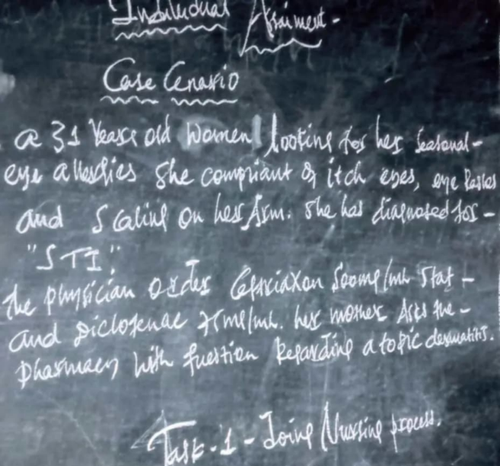 Individual Assiment -
Case Cenario
a 31 Years old Women looking for her Seasonal -
eye allergies She compliant of itch eyes, eye Rashes
and Scaling on her Arm. She has diagnosed for -
"STI"
the physician order Ceftriaxon 500mg/ml Stat -
and Diclofenac 75mg/ml. her mother Asks the -
Pharmacy with question Regarding atopic dermatitis.
Task - 1 - Doing Nursing process.